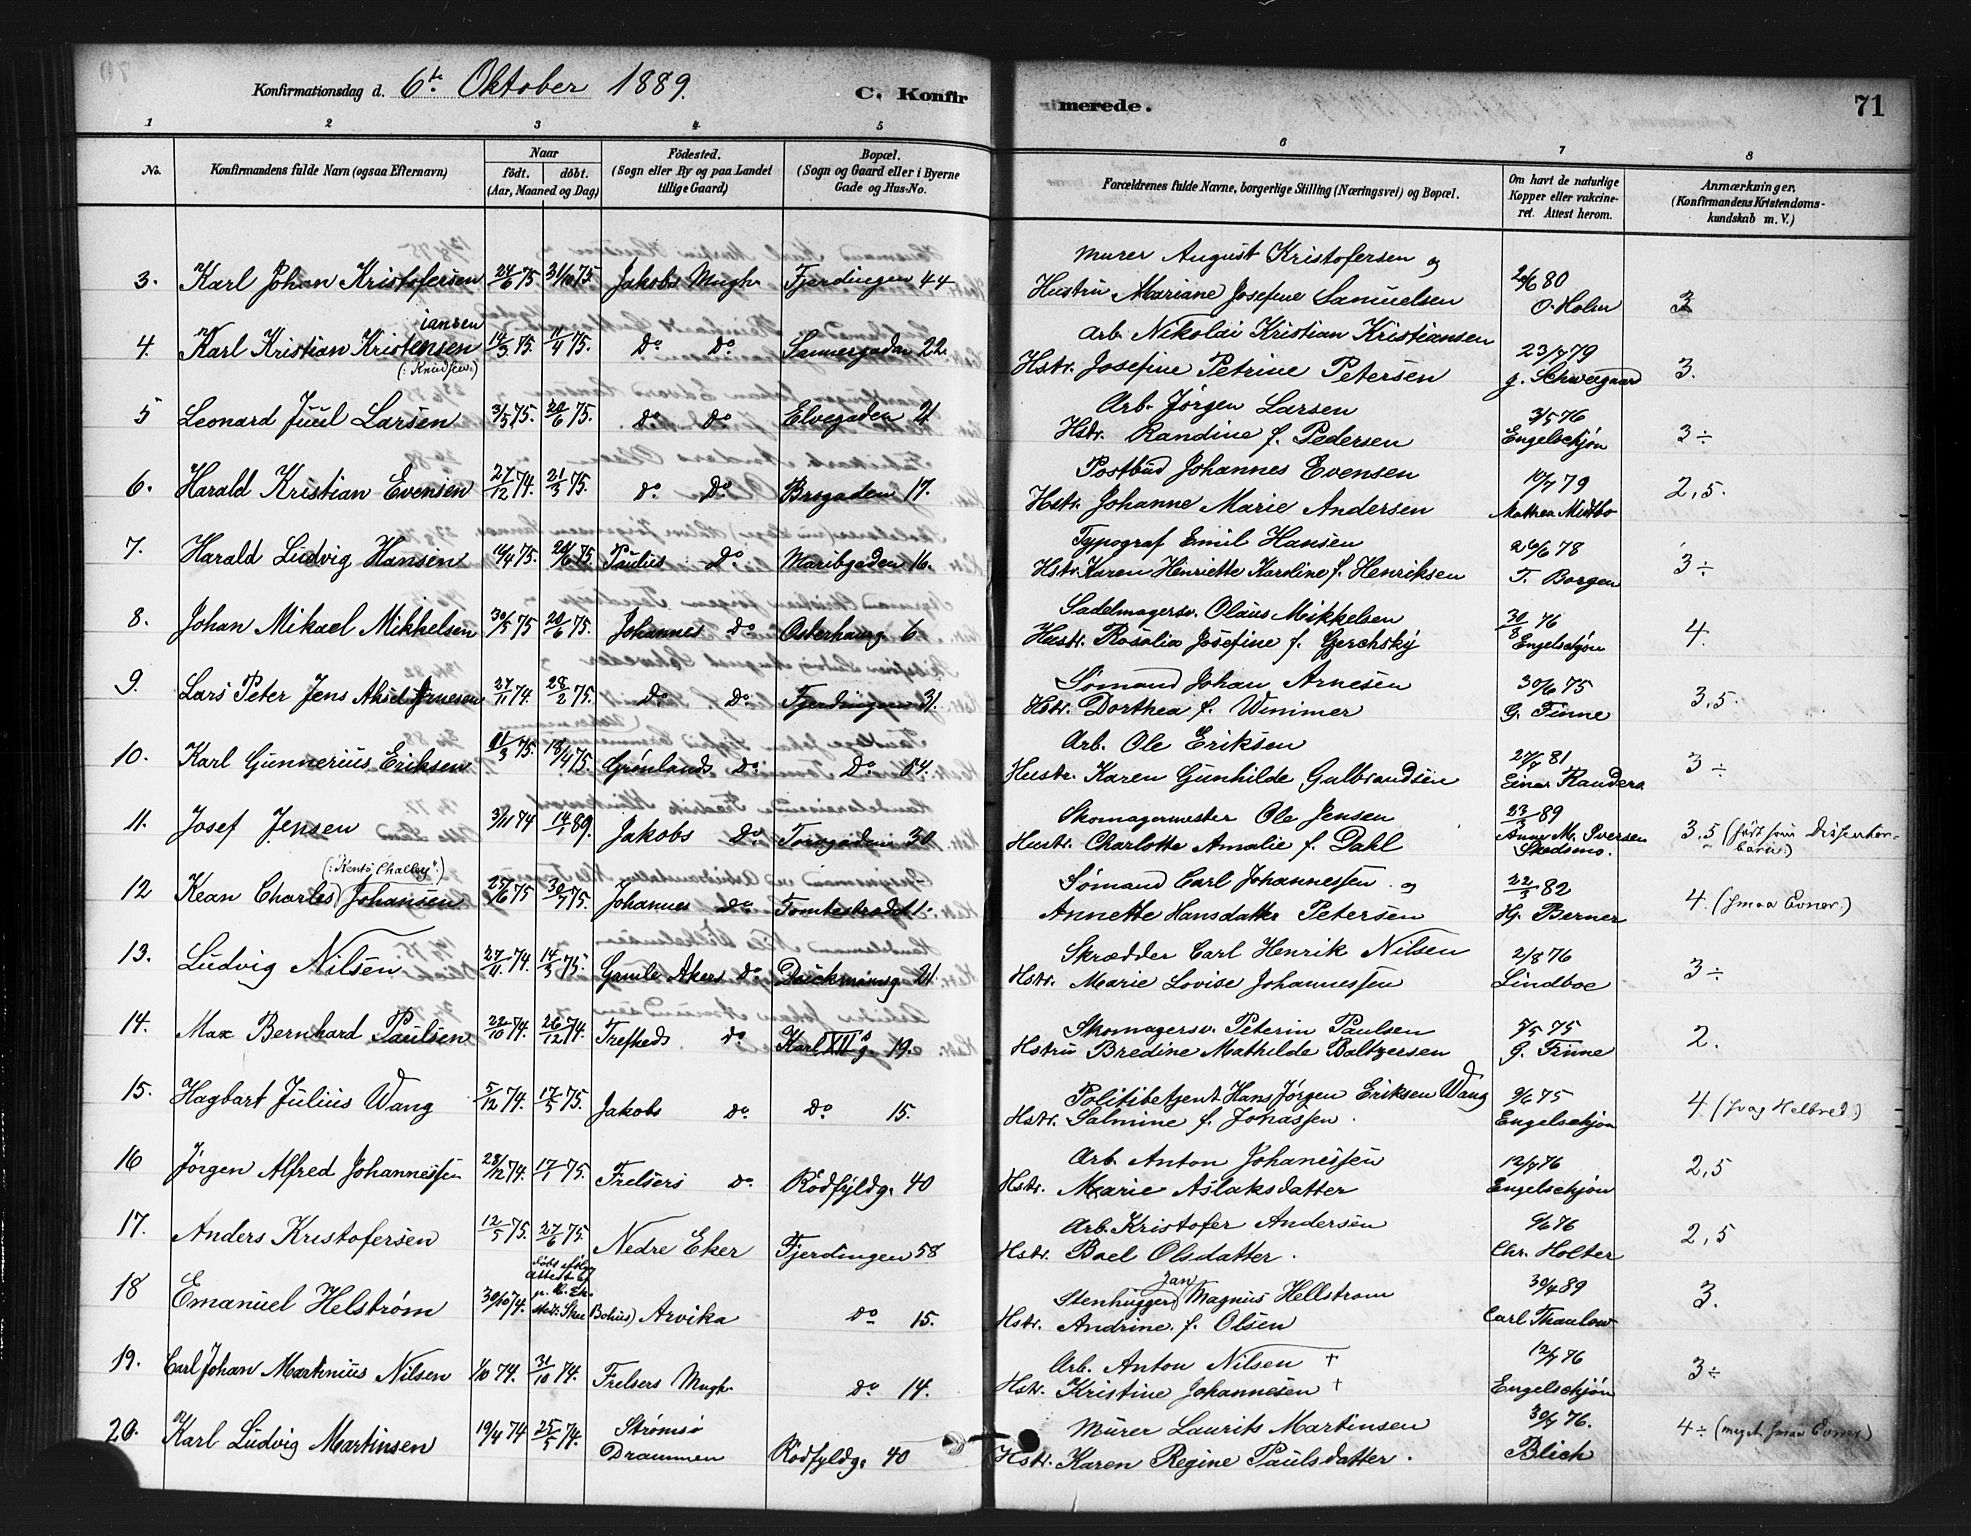 Konfirmationsdag d. 6te Oktober 1889.
C. Konfirmerede.
71
1 2 3 4 5 6 7 8
No.
Konfirmandens fulde Navn (ogsaa Efternavn)
Naar
født. døbt.
(Aar, Maaned og Dag)
Fødested.
(Sogn eller By og paa Landet
tillige Gaard)
Bopæl.
(Sogn og Gaard eller i Byerne
Gade og Hus-No.
Forældrenes fulde Navne, borgerlige Stilling (Næringsvei) og Bopæl.
Om havt de naturlige
Kopper eller vakcine-
ret. Attest herom.
Anmærkninger,
(Konfirmandens Kristendoms-
kundskab m. V.)
Murer August Kristofersen og
3. Karl Johan Kristofersen 24/6 75. 31/10 75. Jakobs Mngh. Fjerdingen 44 Hustru Mariane Josefine Samuelsen 2/6 80 O. Holm 3
iansen
Arb. Nikolai Kristian Kristiansen
4. Karl Kristian Kristensen 14/3 75. 11/4 75. Do Do. Sannergaden 22. Hstr. Josefine Petrine Petersen 23/7 79 J. Schweigaard 3.
(: Knudsen :)
Arb. Jørgen Larsen
5 Leonard Juul Larsen 3/5 75. 20/6 75. Do Do Elvegaden 21. Hstr. Randine f. Pedersen 3/5 76 Engelschjøn 3 ÷
Postbud Johannes Evensen
6. Harald Kristian Evensen 27/12 74. 21/3 75. Do. Do Brogaden 17. Hstr. Johanne Marie Andersen 10/7 79 Mathea Midtbo 2,5.
Typograf Emil Hansen
7. Harald Ludvig Hansen 14/4 75. 20/6 75. Paulus Do Maribgaden 16. Hstr. Karen Henriette Karoline f. Henriksen 26/6 78 T. Borgen 3 ÷
Sadelmagersv. Olaus Mikkelsen
8. Johan Mikael Mikkelsen 30/5 75 20/6 75. Johannes Do Osterhausg. 6 Hustr. Rosalia Josefine f. Gjerchsky 30/8 76 Engelschjøn 4.
Sømand Johan Arnesen
9. Lars Peter Jens Aksel Arnesen 27/11 74. 28/2 75. Do Do. Fjerdingen 31. Hstr. Dorthea f. Wimmer 30/6 75 G. Finne 3,5.
Arb. Ole Eriksen
10. Karl Gunnerius Eriksen 11/3 75. 18/4 75. Grønlands Do Do. 54. Hustr. Karen Gunhilde Gulbrandsen 27/7 81 Einar Randers 3 ÷
Skomagermester Ole Jensen
11. Josef Jensen 3/11 74 14/1 89. Jakobs Do. Torvgaden 30 Hustr. Charlotte Amalie f. Dahl 23/3 89 Anne M. Iversen Skedsmo. 3,5 (født som Dissenter-
barn:)
(: "Kents Challey" :)
Sømand Carl Johannessen og
12 Kean Charles Johansen 25/6 75 30/7 75. Johannes Do. Tomtestrædet 1. Annette Hansdatter Petersen 22/3 82 Hj. Berner 4. (smaa Evner.)
Skrædder Carl Henrik Nilsen
13. Ludvig Nilsen 27/11 74. 14/3 75. Gamle Akers Do. Daickmansg 21. Hstr. Marie Lovise Johannessen 2/8 76 Lindboe 3 ÷
Skomagersv. Peterin Paulsen
14. Max Bernhard Paulsen 22/10 74. 26/12 74. Trefheds Do Karl XIIs g. 19. Hstru Bredine Mathilde Baltzersen 7/5 75 G. Finne 2.
Politibetjent Hans Jørgen Eriksen Wang
15. Hagbart Julius Wang 5/12 74. 17/5 75. Jakobs Do. Do 15. Hstr. Salmine f. Jonassen. 9/6 75 Engelschjøn 4. (svag Helbred.)
Arb. Anton Johanessen
16 Jørgen Alfred Johannessen 28/12 74. 17/1 75. Frelsers Do Rødfyldg. 40 Hstr. Marie Aslaksdatter 12/7 76 Engelschjøn 2,5
Arb. Kristofer Andersen
17. Anders Kristofersen 12/5 75. 27/6 75. Nedre Eker Fjerdingen 58 Hstr. Boel Olsdatter. 9/6 76 Chr. Holter 2,5
døbt ifølge
Attest af
Jan
Stenhugger Magnus Hellstrom
18 Emanuel Helstrøm 30/10 74. Bohus) Arvika Do 15. Hstr. Andrine f. Olsen 30/4 89 Carl Thaulow 3.
Arb. Anton Nilsen †
19. Carl Johan Martinius Nilsen 1/10 74. 31/10 74. Frelsers Mngh. Do 14. Hstr. Kristine Johannesen † 12/7 76 Engelschjøn 3 ÷
Murer Laurits Martinsen
20. Karl Ludvig Martinsen 19/4 74 25/5 74. Strømsø Drammen Rødfyldg. 40 Hstr. Karen Regine Paulsdatter. 30/7 76. Blich 4 ÷ (meget smaa Evner)